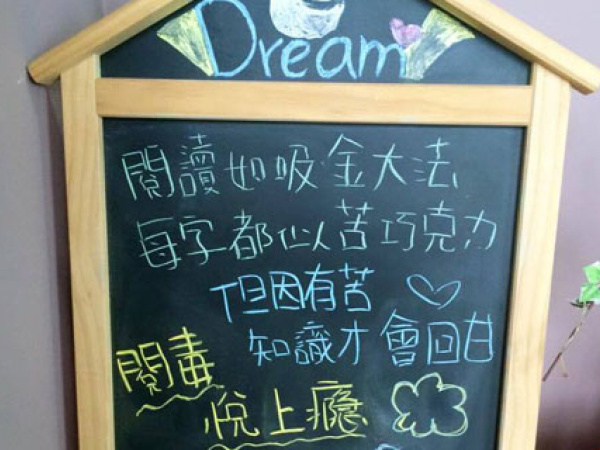 Dream
閱讀如吸金大法
每字都似苦巧克力
但因有苦
知識才會回甘
閱毒
悅上癮